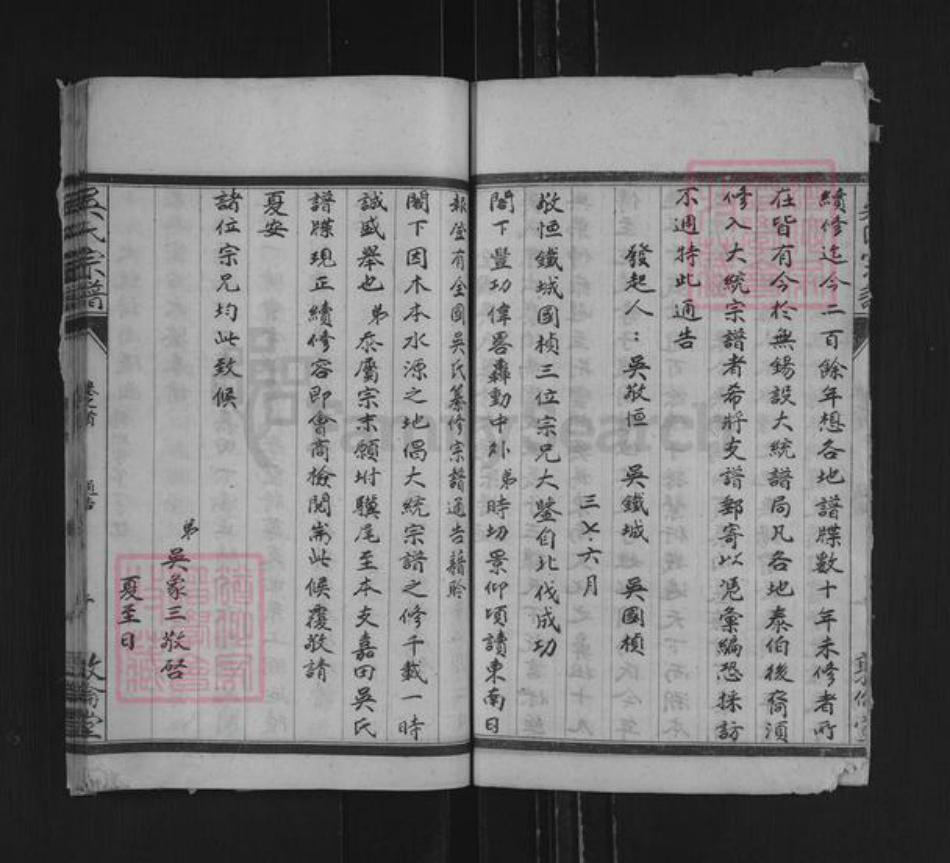 續修迄今二百餘年想各地譜牒數十年未修者所
在皆有今於無錫設大統譜局凡各地泰伯後裔須
修入大統宗譜者希將支譜郵寄以憑彙編恐採訪
不週特此通告
發起人：吳敬恒 吳鐵城 吳國楨
三七、六月
敬恒鐵城國楨三位宗兄大鑒自北伐成功
閣下豐功偉畧轟動中外弟時切景仰頃讀東南日
報登有全國吳氏纂修宗譜通告藉聆
閣下因木本水源之地倡大統宗譜之修千載一時
誠盛舉也弟忝屬宗末願坿驥尾至本支嘉田吳氏
譜牒現正續修容即會商檢閱耑此候覆敬請
夏安
諸位宗兄均此致候
弟吳象三敬啓
夏至日
吳氏宗譜
卷之首
通告
敦倫堂